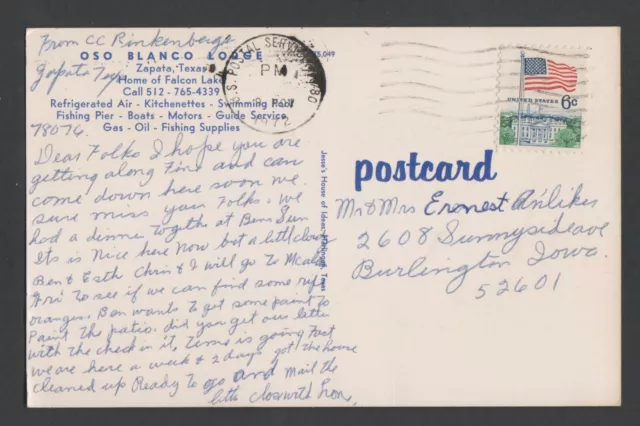 From CC Rinkenberger
Zapata Tex
78076
OSO BLANCO LODGE
Zapata, Texas
Home of Falcon Lake
Call 512 - 765-4339
Refrigerated Air - Kitchenettes - Swimming Pool
Fishing Pier - Boats - Motors - Guide Service
Gas - Oil - Fishing Supplies
Dear Folks I hope you are
getting along Fine and can
come down here soon we
sure miss you Folks. We
had a dinner togeths at Bens Sun
Its is Nice here Now but a little
Ben & Esth Chris & I will go to
Fri to see if we can find some ripe
oranges. Ben wants to get some paint to
Paint the patio. did you get our letter
with the check in it, time is going Fast
we are here a week & 2 days got the house
cleaned up Ready to go and mail the
with
Jesse's House of Ideas, Harlingen, Texas
U.S. POSTAL SERVICE
PM
1972
UNITED STATES
6c
postcard
Mr & Mrs Ernest
2608 Sunnyside ave
Burlington Iowa.
52601